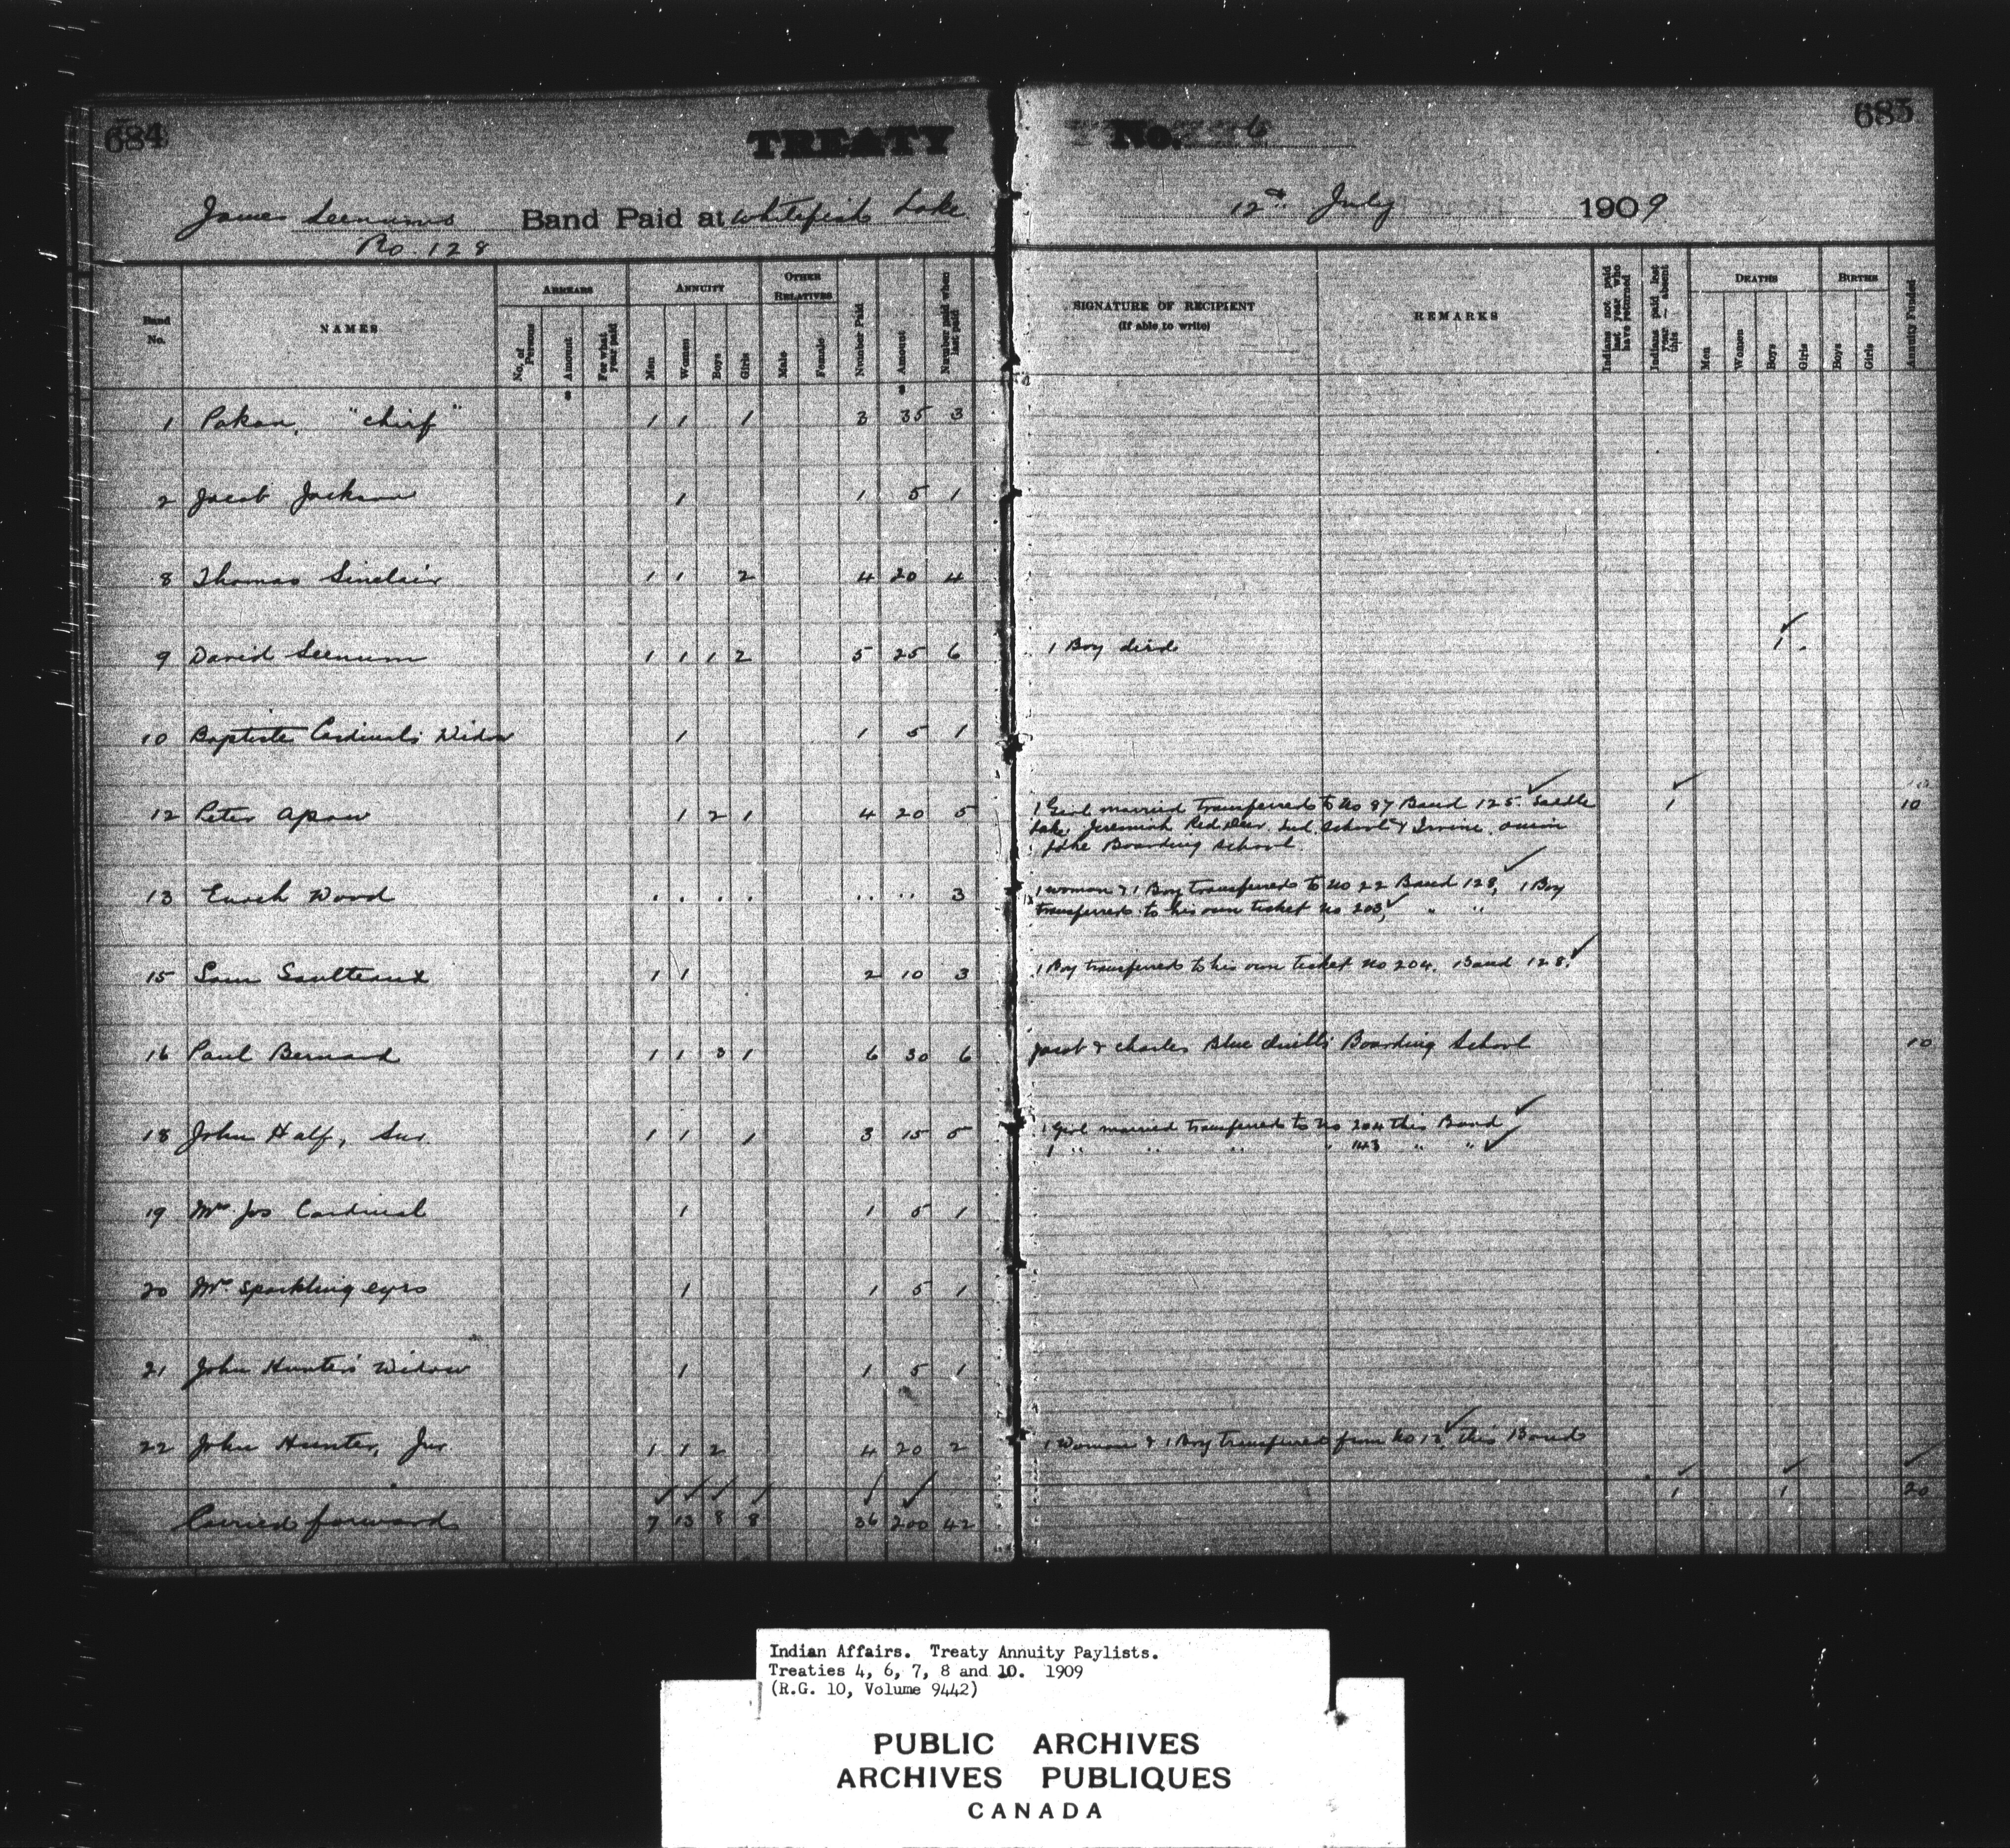 684
TREATY
No. 6
685
James Seenums Band Paid at Whitefish Lake
No. 128
12th July 1909
Band No.
NAMES
ARREARS
No. of Persons
Amount
For what year paid
ANNUITY
Men
Women
Boys
Girls
OTHER RELATIVES
Male
Female
Number Paid
Amount
Number paid when last paid
SIGNATURE OF RECIPIENT
(If able to write)
REMARKS
Indians not paid last year who have returned
Indians paid last year - absent this
DEATHS
Men
Women
Boys
Girls
BIRTHS
Boys
Girls
Annuity Funded
1 Pakan, "Chief" 1 1 1 3 35 3
2 Jacob Jackson 1 1 5 1
8 Thomas Sinclair 1 1 2 4 20 4
9 David Seenum 1 1 1 2 5 25 6 1 Boy died 1
10 Baptiste Cardinal's Widow 1 1 5 1
12 Peter Apow 1 2 1 4 20 5 1 Girl married transferred to No 87 Band 125 Saddle 1 10
Lake Jeremiah Red Deer Ind. School & Irvine
Lake Boarding School
13 Enoch Wood . . . . .. .. 3 1 woman & 1 Boy transferred to No 22 Band 128, 1 Boy
transferred to his own ticket No 203 " "
15 Sam Saulteaux 1 1 2 10 3 1 Boy transferred to his own ticket No 204. Band 128.
16 Paul Bernard 1 1 3 1 6 30 6 Jacob & Charles Blue Quill's Boarding School 10
18 John Half, Snr. 1 1 1 3 15 5 1 Girl married transferred to No 204 this Band
1 " " " " 143 " "
19 Mrs Jos Cardinal 1 1 5 1
20 Mrs Sparkling eyes 1 1 5 1
21 John Hunter's Widow 1 1 5 1
22 John Hunter, Jnr 1 1 2 4 20 2 1 Woman & 1 Boy transferred from No 13, this Band
Carried forward 7 13 8 8 36 200 42 1 1 20
Indian Affairs. Treaty Annuity Paylists.
Treaties 4, 6, 7, 8 and 10. 1909
(R.G. 10, Volume 9442)
PUBLIC ARCHIVES
ARCHIVES PUBLIQUES
CANADA